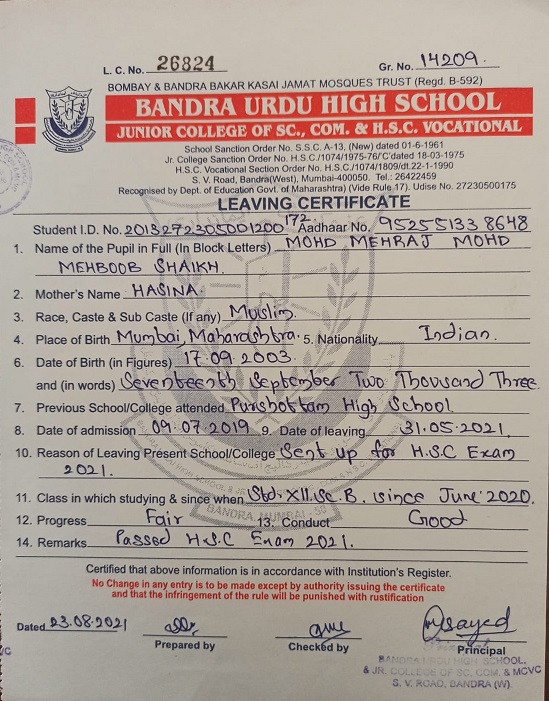 L. C. No. 26824 Gr. No. 14209.
BOMBAY & BANDRA BAKAR KASAI JAMAT MOSQUES TRUST (Regd. B-592)
BANDRA URDU HIGH SCHOOL
JUNIOR COLLEGE OF SC., COM. & H.S.C. VOCATIONAL
School Sanction Order No. S.S.C. A-13, (New) dated 01-6-1961
Jr. College Sanction Order No. H.S.C./1074/1975-76/'C'dated 18-03-1975
H.S.C. Vocational Section Order No. H.S.C./1074/1809/dt.22-1-1990
S. V. Road, Bandra(West), Mumbai-400050. Tel.: 26422459
Recognised by Dept. of Education Govt. of Maharashtra) (Vide Rule 17). Udise No. 27230500175
LEAVING CERTIFICATE
Student I.D. No. 2013272305001200172 Aadhaar No. 95255133 8648
1. Name of the Pupil in Full (In Block Letters) MOHD MEHRAJ MOHD
MEHBOOB SHAIKH.
2. Mother's Name HASINA.
3. Race, Caste & Sub Caste (If any) Muslim.
4. Place of Birth Mumbai, Maharashtra. 5. Nationality Indian.
6. Date of Birth (in Figures) 17.09.2003.
and (in words) Seventeenth September Two Thousand Three.
7. Previous School/College attended Purshottam High School
8. Date of admission 09.07.2019 9. Date of leaving 31.05.2021.
10. Reason of Leaving Present School/College Sent up for H.S.C Exam
2021.
11. Class in which studying & since when Std. XII.Sc.B. since June' 2020.
12. Progress Fair 13. Conduct Good
14. Remarks Passed H.S.C Exam 2021.
BANDRA MUMBAI - 50
Certified that above information is in accordance with Institution's Register.
No Change in any entry is to be made except by authority issuing the certificate
and that the infringement of the rule will be punished with rustification
Dated 23.08.2021
Prepared by Checked by Principal
BANDRA URDU HIGH SCHOOL,
& JR. COLLEGE OF SC, COM. & MCVC
S. V. ROAD, BANDRA (W).